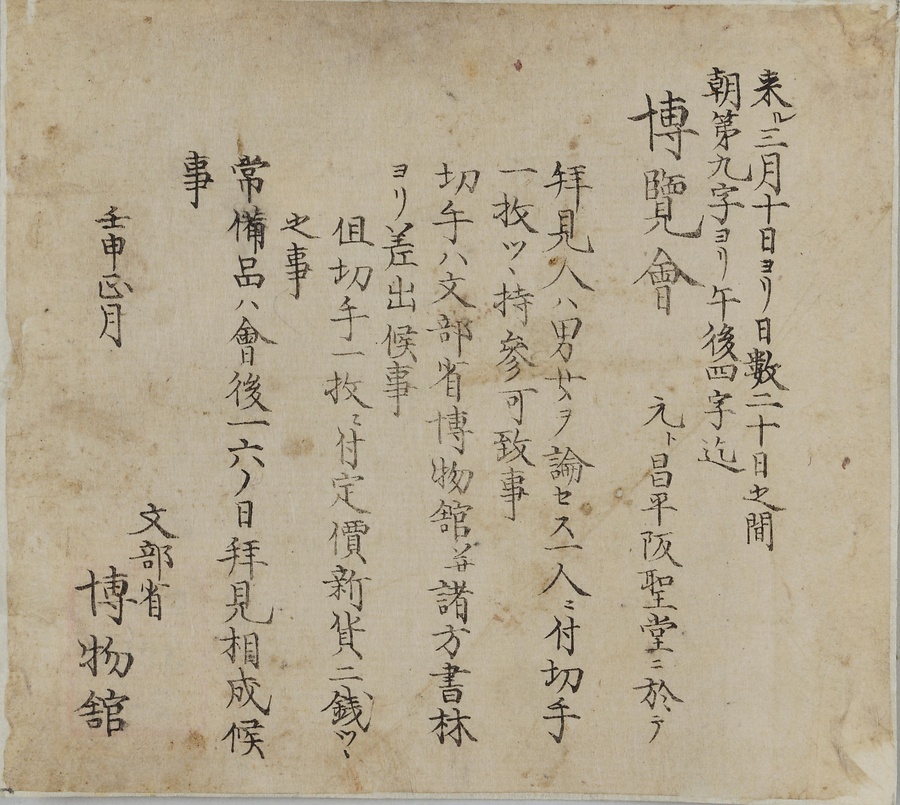 来ル三月十日ヨリ日数二十日之間
朝第九字ヨリ午後四字迄
博覽會 元ト昌平阪聖堂ニ於テ
拜見人ハ男女ヲ論セス一人ニ付切手
一枚ツヽ持參可致事
切手ハ文部省博物館并諸方書林
ヨリ差出候事
但切手一枚ニ付定價新貨二銭ツヽ
之事
常備品ハ會後一六ノ日拜見相成候
事
壬申正月
文部省
博物館